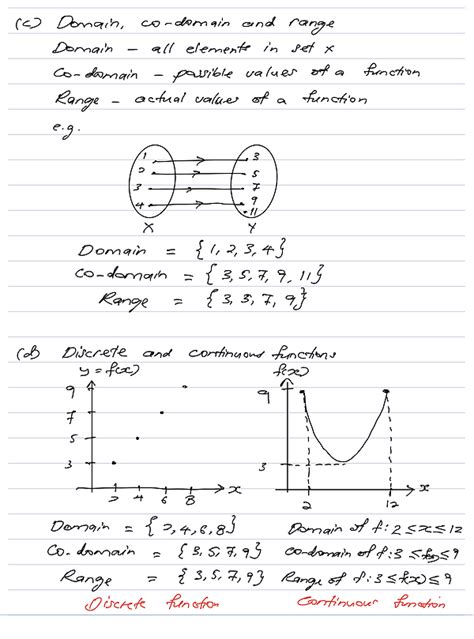 (c) Domain, co-domain and range
Domain – all elements in set x
Co-domain – possible values of a function
Range – actual values of a function
e.g.
1 3
2 5
3 7
4 9
11
X Y
Domain = {1, 2, 3, 4}
Co-domain = {3, 5, 7, 9, 11}
Range = {3, 5, 7, 9}
(d) Discrete and continuous functions
y = f(x) f(x)
9 9
7
5
3 3
2 4 6 8 x 2 12 x
Domain = {2, 4, 6, 8} Domain of f: 2 ≤ x ≤ 12
Co-domain = {3, 5, 7, 9} co-domain of f: 3 ≤ f(x) ≤ 9
Range = {3, 5, 7, 9} Range of f: 3 ≤ f(x) ≤ 9
Discrete function Continuous function